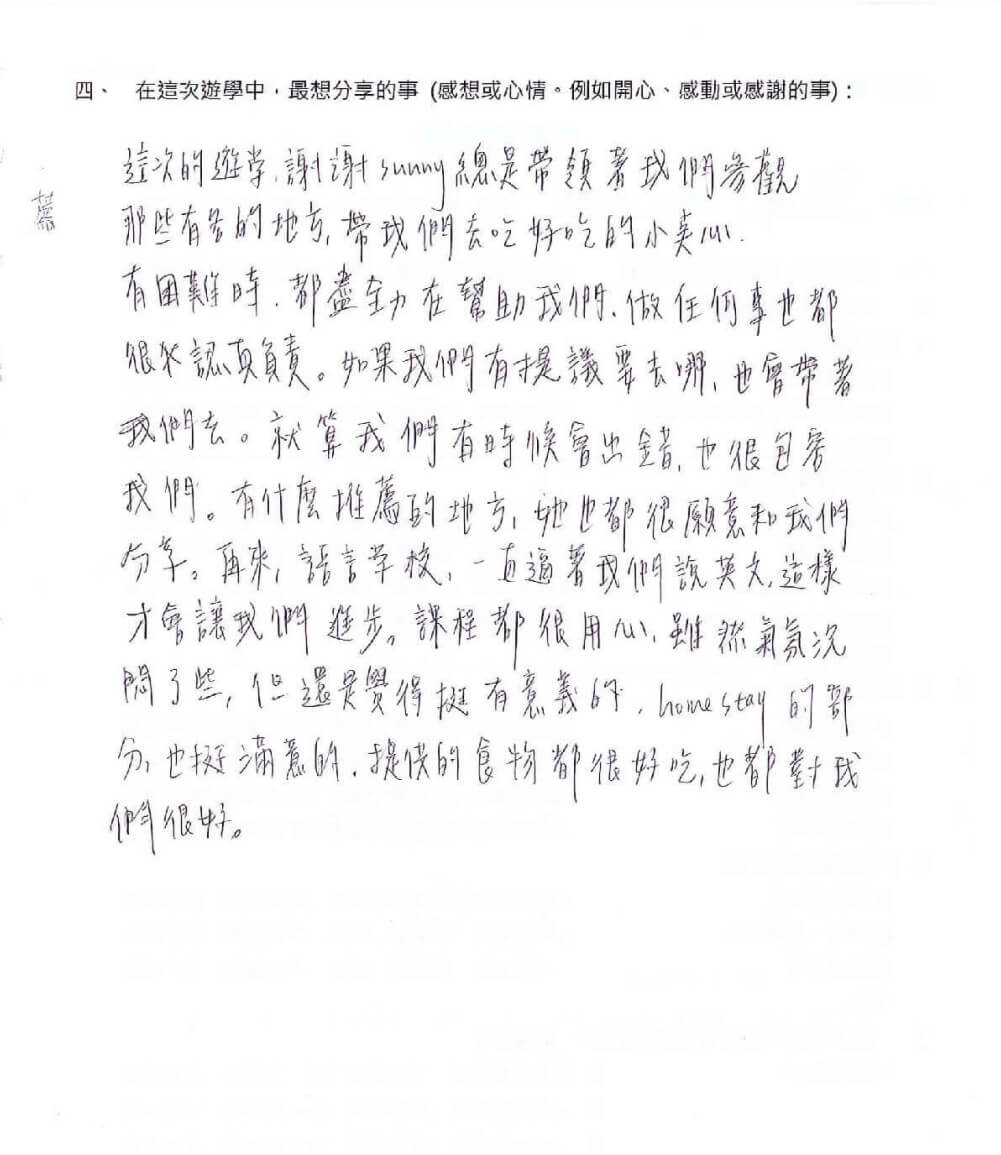 四、 在這次遊學中，最想分享的事 (感想或心情。例如開心、感動或感謝的事)：
這次的遊学,謝謝sunny總是帶領著我們參觀
那些有名的地方,帶我們去吃好吃的小美心.
有困難時.都盡全力在幫助我們.做任何事也都
很認真負責。如果我們有提議要去哪,也會帶著
我們去。就算我們有時候會出錯,也很包容
我們。有什麼推薦的地方,她也都很願意和我們
分享。再來,語言学校,一直逼著我們說英文,這樣
才會讓我們進步。課程都很用心.雖然氣氛沉
悶了些,但還是覺得挺有意義的.homestay的部
分,也挺滿意的.提供的食物都很好吃,也都對我
們很好。